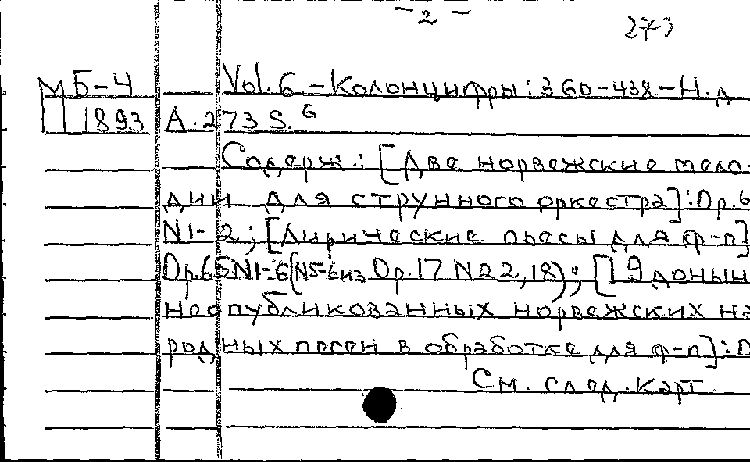 – 2 –
273
М Б-4 Vol. 6 – Колонцифры: 360-438 – Н.д
П 1893 А. 273 S. 6
Содерж.: [Две норвежские мело-
дии для струнного оркестра]: Op. 6
N1-2; [Лирические пьесы для ф-п]
Op. 65 N1-6 (N5-6 из Op. 17 N22, 18); [19 донын
неопубликованных норвежских на
родных песен в обработке для ф-п]: О
См. след. карт